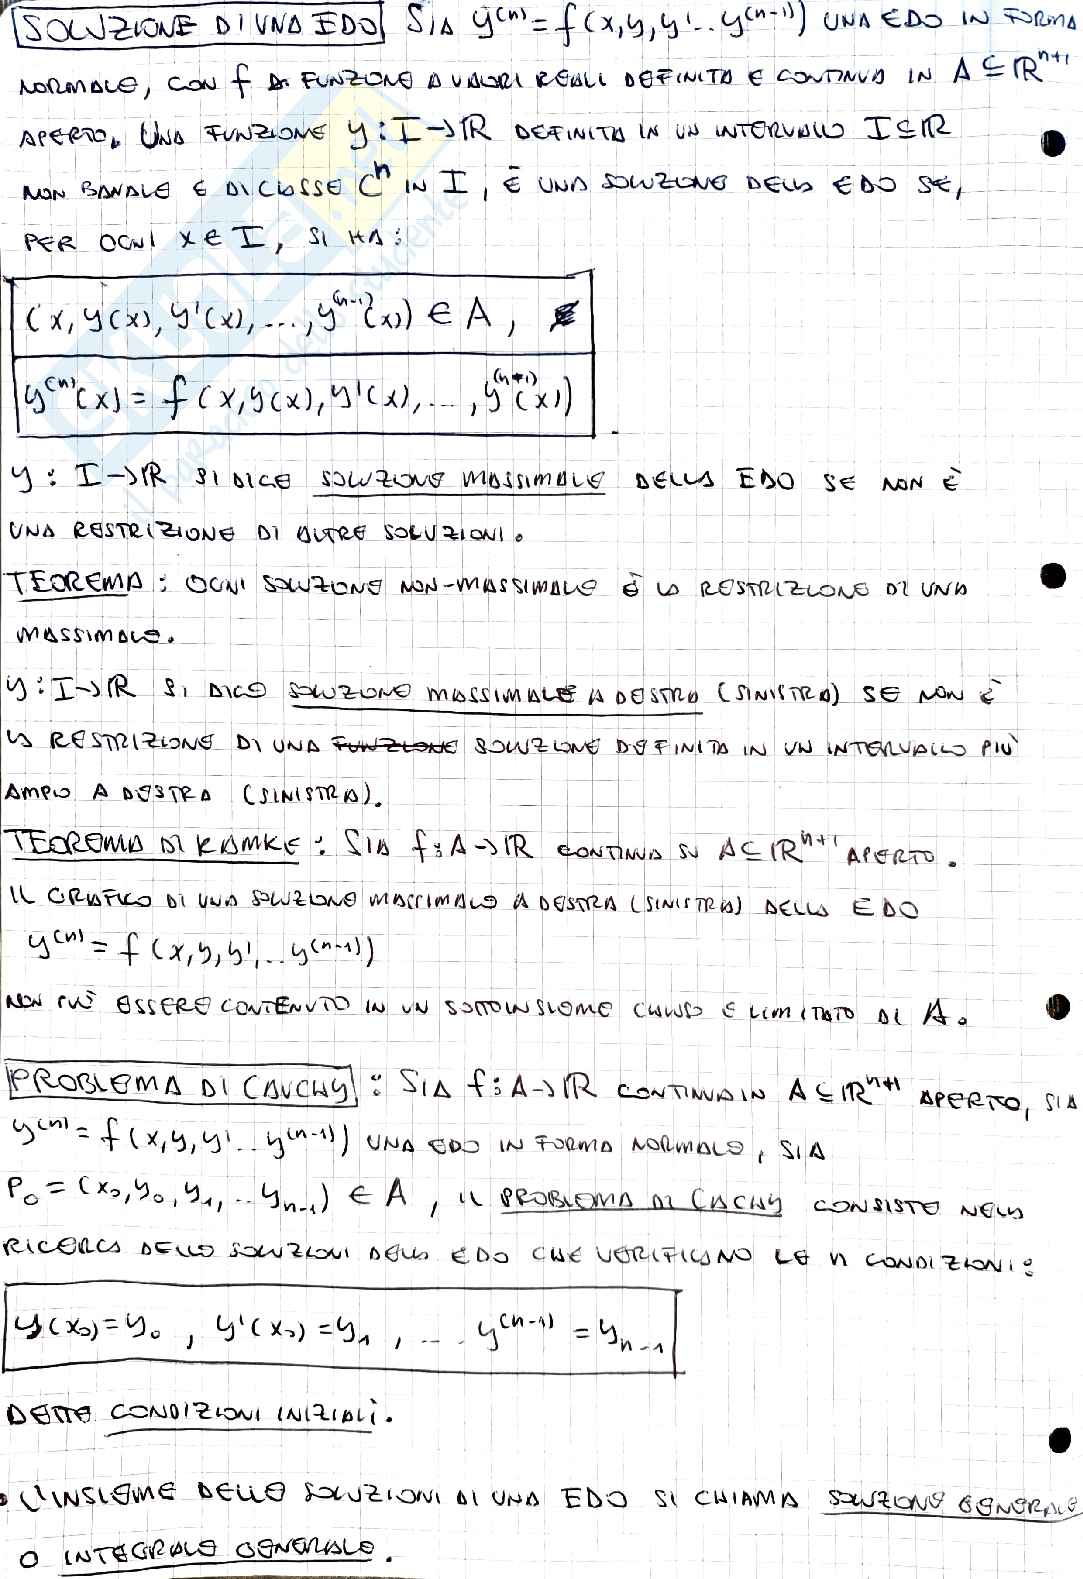 SOLUZIONE DI UNA EDO SIA y⁽ⁿ⁾ = f(x,y,y'.. y⁽ⁿ⁻¹⁾) UNA EDO IN FORMA
NORMALE, CON f FUNZIONE A VALORI REALI DEFINITA E CONTINUA IN A ⊆ ℝⁿ⁺¹
APERTO. UNA FUNZIONE y: I→ℝ DEFINITA IN UN INTERVALLO I⊆ℝ
NON BANALE E DI CLASSE Cⁿ IN I, È UNA SOLUZIONE DELLA EDO SE,
PER OGNI x ∈ I, SI HA:
(x, y(x), y'(x), ..., y⁽ⁿ⁻¹⁾(x)) ∈ A,
y⁽ⁿ⁾(x) = f(x, y(x), y'(x), ..., y⁽ⁿ⁻¹⁾(x))
y: I→ℝ SI DICE SOLUZIONE MASSIMALE DELLA EDO SE NON È
UNA RESTRIZIONE DI ALTRE SOLUZIONI.
TEOREMA: OGNI SOLUZIONE NON-MASSIMALE È LA RESTRIZIONE DI UNA
MASSIMALE.
y: I→ℝ SI DICE SOLUZIONE MASSIMALE A DESTRA (SINISTRA) SE NON È
LA RESTRIZIONE DI UNA FUNZIONE SOLUZIONE DEFINITA IN UN INTERVALLO PIÙ
AMPIO A DESTRA (SINISTRA).
TEOREMA DI KAMKE: SIA f: A→ℝ CONTINUA SU A⊆ℝⁿ⁺¹ APERTO.
IL GRAFICO DI UNA SOLUZIONE MASSIMALE A DESTRA (SINISTRA) DELLA EDO
y⁽ⁿ⁾ = f(x,y,y',.. y⁽ⁿ⁻¹⁾)
NON PUÒ ESSERE CONTENUTO IN UN SOTTOINSIEME CHIUSO E LIMITATO DI A.
PROBLEMA DI CAUCHY: SIA f: A→ℝ CONTINUA IN A ⊆ ℝⁿ⁺¹ APERTO, SIA
y⁽ⁿ⁾ = f(x,y,y'.. y⁽ⁿ⁻¹⁾) UNA EDO IN FORMA NORMALE, SIA
P₀ = (x₀, y₀, y₁, .. yₙ₋₁) ∈ A, IL PROBLEMA DI CACHY CONSISTE NELLA
RICERCA DELLE SOLUZIONI DELLA EDO CHE VERIFICANO LE n CONDIZIONI:
y(x₀) = y₀, y'(x₀) = y₁, .... y⁽ⁿ⁻¹⁾ = yₙ₋₁
DETTE CONDIZIONI INIZIALI.
• L'INSIEME DELLE SOLUZIONI DI UNA EDO SI CHIAMA SOLUZIONE GENERALE
O INTEGRALE GENERALE.